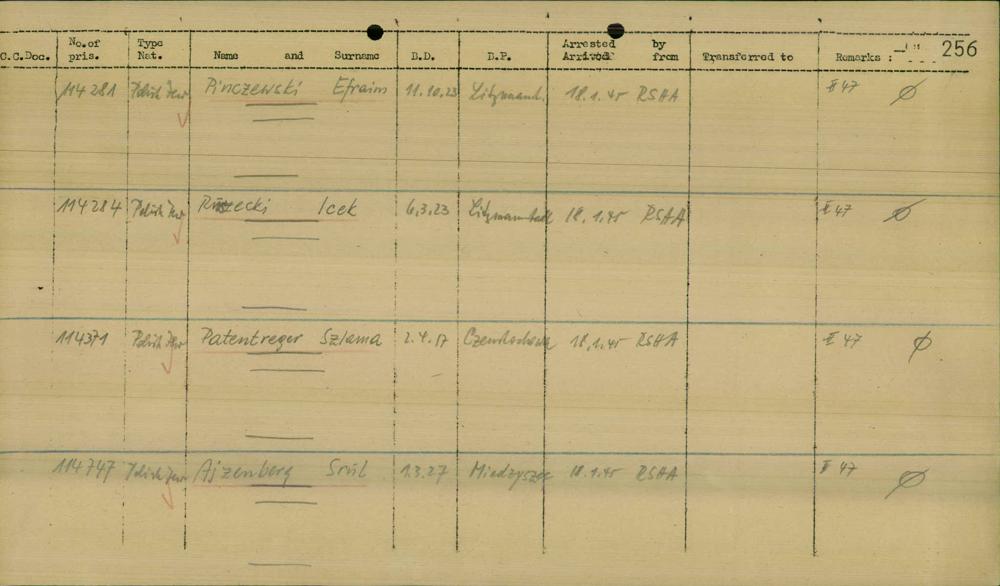 256
No.of Type Arrested by
C.C.Doc. pris. Nat. Name and Surname B.D. B.P. Arrived from Transferred to Remarks :
114281 Polish Jew Pinczewski Efraim 11.10.23 Litzmannst. 18.1.45 RSHA II 47 Ø
114284 Polish Jew Icek 6.3.23 Litzmannstadt 18.1.45 RSHA II 47 Ø
114371 Polish Jew Patentreger Szlama 2.4.17 Czenstochowa 18.1.45 RSHA II 47 Ø
114747 Polish Jew Ajzenberg Srul 1.3.27 Miedzyszec 18.1.45 RSHA II 47 Ø